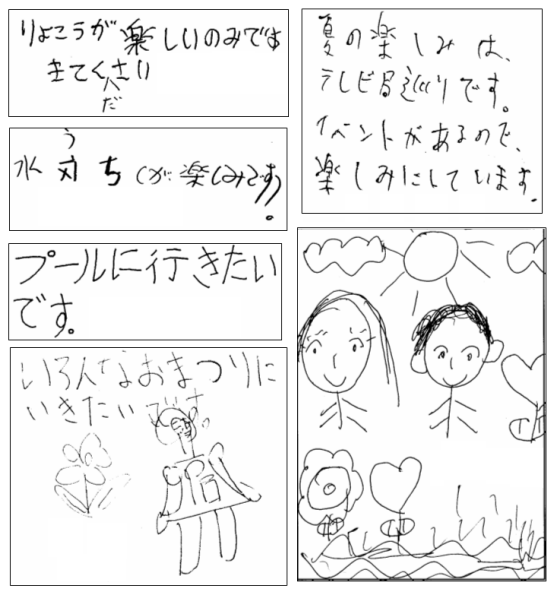 りょこうが楽しいのみです
きてくさい
だ
う
水刃ちが楽しみです。
プールに行きたい
です。
いろんなおまつりに
いきたいです
夏の楽しみは、
テレビ局巡りです。
イベントがあるので、
楽しみにしています。